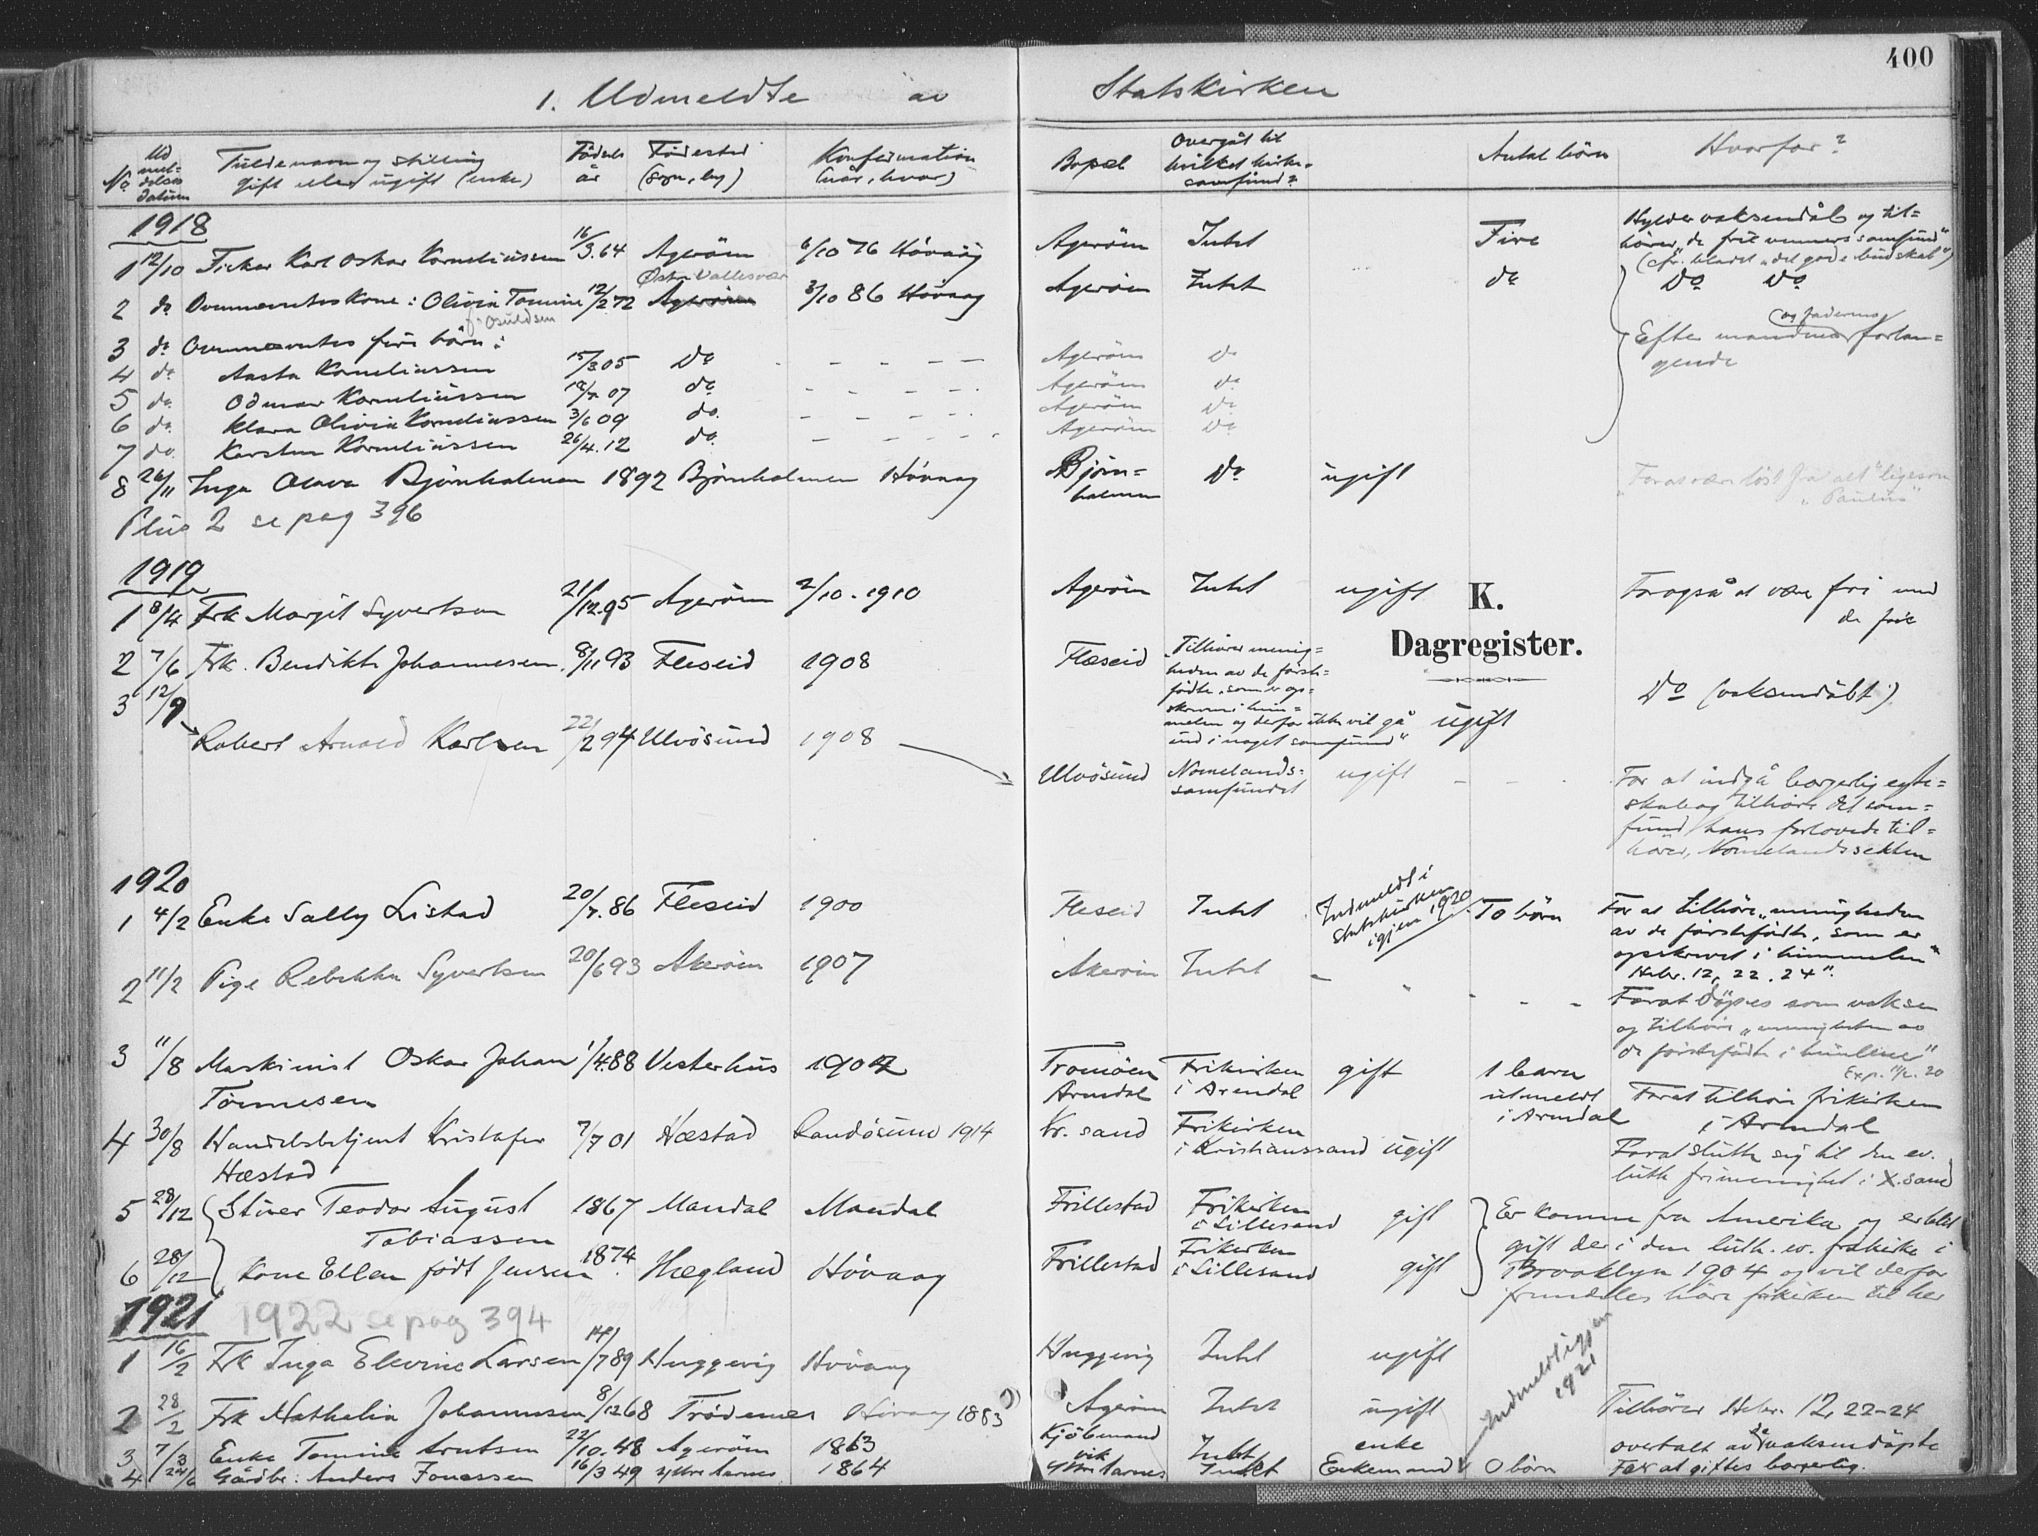 400
1. Udmeldte av Statskirken
No Ud mel- delses datum Fulde navn og stilling gift eller ugift (enke) Fødsels år Fødested (sogn, by) Konfirmation (når, hvor) Bopæl Overgåt til hvilket kirke- samfund? Antal børn Hvorfor?
1918
1 12/10 Fisker Karl Oskar Korneliussen 16/3.64 Agerøen 6/10 76 Høvaag Agerøen Intet Fire Hylder voksendåb og til-
hører "de frie venners samfund"
(cfr. bladet "det gode budskab")
2 do Ovennævntes kone: Olivia Tomine 12/2 72 Østre Vallesvær 3/10 86 Høvaag Agerøen Intet do Do Do
f. Osuldsen
3 do Ovennævntes fire børn: Efter mandens (og faderens) forlan-
gende
4 do Aasta Korneliussen 15/3.05 Do - - - - Agerøen do
5 do Odmar Korneliussen 07 do - - - - Agerøen do
6 do Klara Olivia Korneliussen 3/6 09 do - - - - Agerøen do
7 do Karsten Korneliussen 26/4.12 do - - - - Agerøen do
8 26/11 Inga Olava Bjørnholmen 1892 Bjørnholmen Høvaag Bjørn-
holmen Do ugift "For at være løst fra alt" ligesom
"Paulus"
Plus 2 se pag 396
1919
1 8/4 Frk Margit Syvertsen 21/12.95 Agerøen 2/10 - 1910 Agerøen Intet ugift For også at være fri med
de frie
K.
Dagregister.
2 7/6 Frk. Bendikte Johannesen 8/11 93 Fleseid 1908 Flæseid "Tilhører menig-
heden av de først-
fødte, som er op-
skrevne i him-
melen og derfor ikke vil gå
ind i noget samfund" ugift Do (voksendåbt)
3 12/9 Robert Arnold Karlsen 22/2 94 Ulvøsund 1908 Ulvøsund Nomelands-
samfundet ugift - - - For at indgå borgerlig egte-
skab og tilhøre det sam-
fund hans forlovede til-
hører, Nomelandssekten
1920
1 4/2 Enke Sally Listad 20/7.86 Fleseid 1900 Fleseid Intet Indmeldt i
statskirken
igjen 1920 To børn For at tilhøre "menigheden
av de førstefødte, som er
opskrevet i himmelen"
Hebr. 12, 22. 24".
2 11/2 Pige Rebekka Syvertsen 20/6 93 Akerøen 1907 Akerøen Intet - - - - For at døpes som voksen
og tilhøre "menigheten av
de førstefødte i himlene"
Exp. 11/2. 20
3 11/8 Maskinist Oskar Johan 1/4.88 Vesterhus 1904 Tromøen Frikirken gift 1 barn
Tønnesen Arendal i Arendal utmeldt
i Arendal For at tilhøre frikirken
i Arendal
4 30/8 Handelsbetjent Kristofer 7/7 01 Hæstad Randøsund 1914 Kr. sand Frikirken
Hæstad i Kristianssand ugift For at slutte sig til den ev.
luth frimenighet i X.sand
5 28/12 Stuer Teodor August 1867 Mandal Mandal Frillestad Frikirken
Tobiassen i Lillesand gift Er komne fra Amerika og er blet
gift der i den luth. ev. frikirke i
6 28/12 Kone Ellen født Jensen 1874 Hægland Høvaag Frillestad Frikirken
i Lillesand gift Brooklyn 1904 og vil derfor
fremdeles høre frikirken til her
1921 1922 se pag 394
1 16/2 Frk Inga Elevine Larsen 14/7 89 Huggevig Høvaag Huggevig Intet ugift
2 28/2 Frk Nathalia Johannesen 8/12 68 Trødenes Høvaag 1883 Agerøen Intet ugift Indmeldt igjen
1921 Tilhører Hebr. 12, 22-24
3 7/3 Enke Tomine Arntsen 22/10.48 Agerøen 1863 Kjøbmand
vik Intet enke overtalt av de voksendøpte
4 Gårdbr. Anders Jonassen 16/3 49 1864 Intet Enkemand 0 børn For at giftes borgerlig.